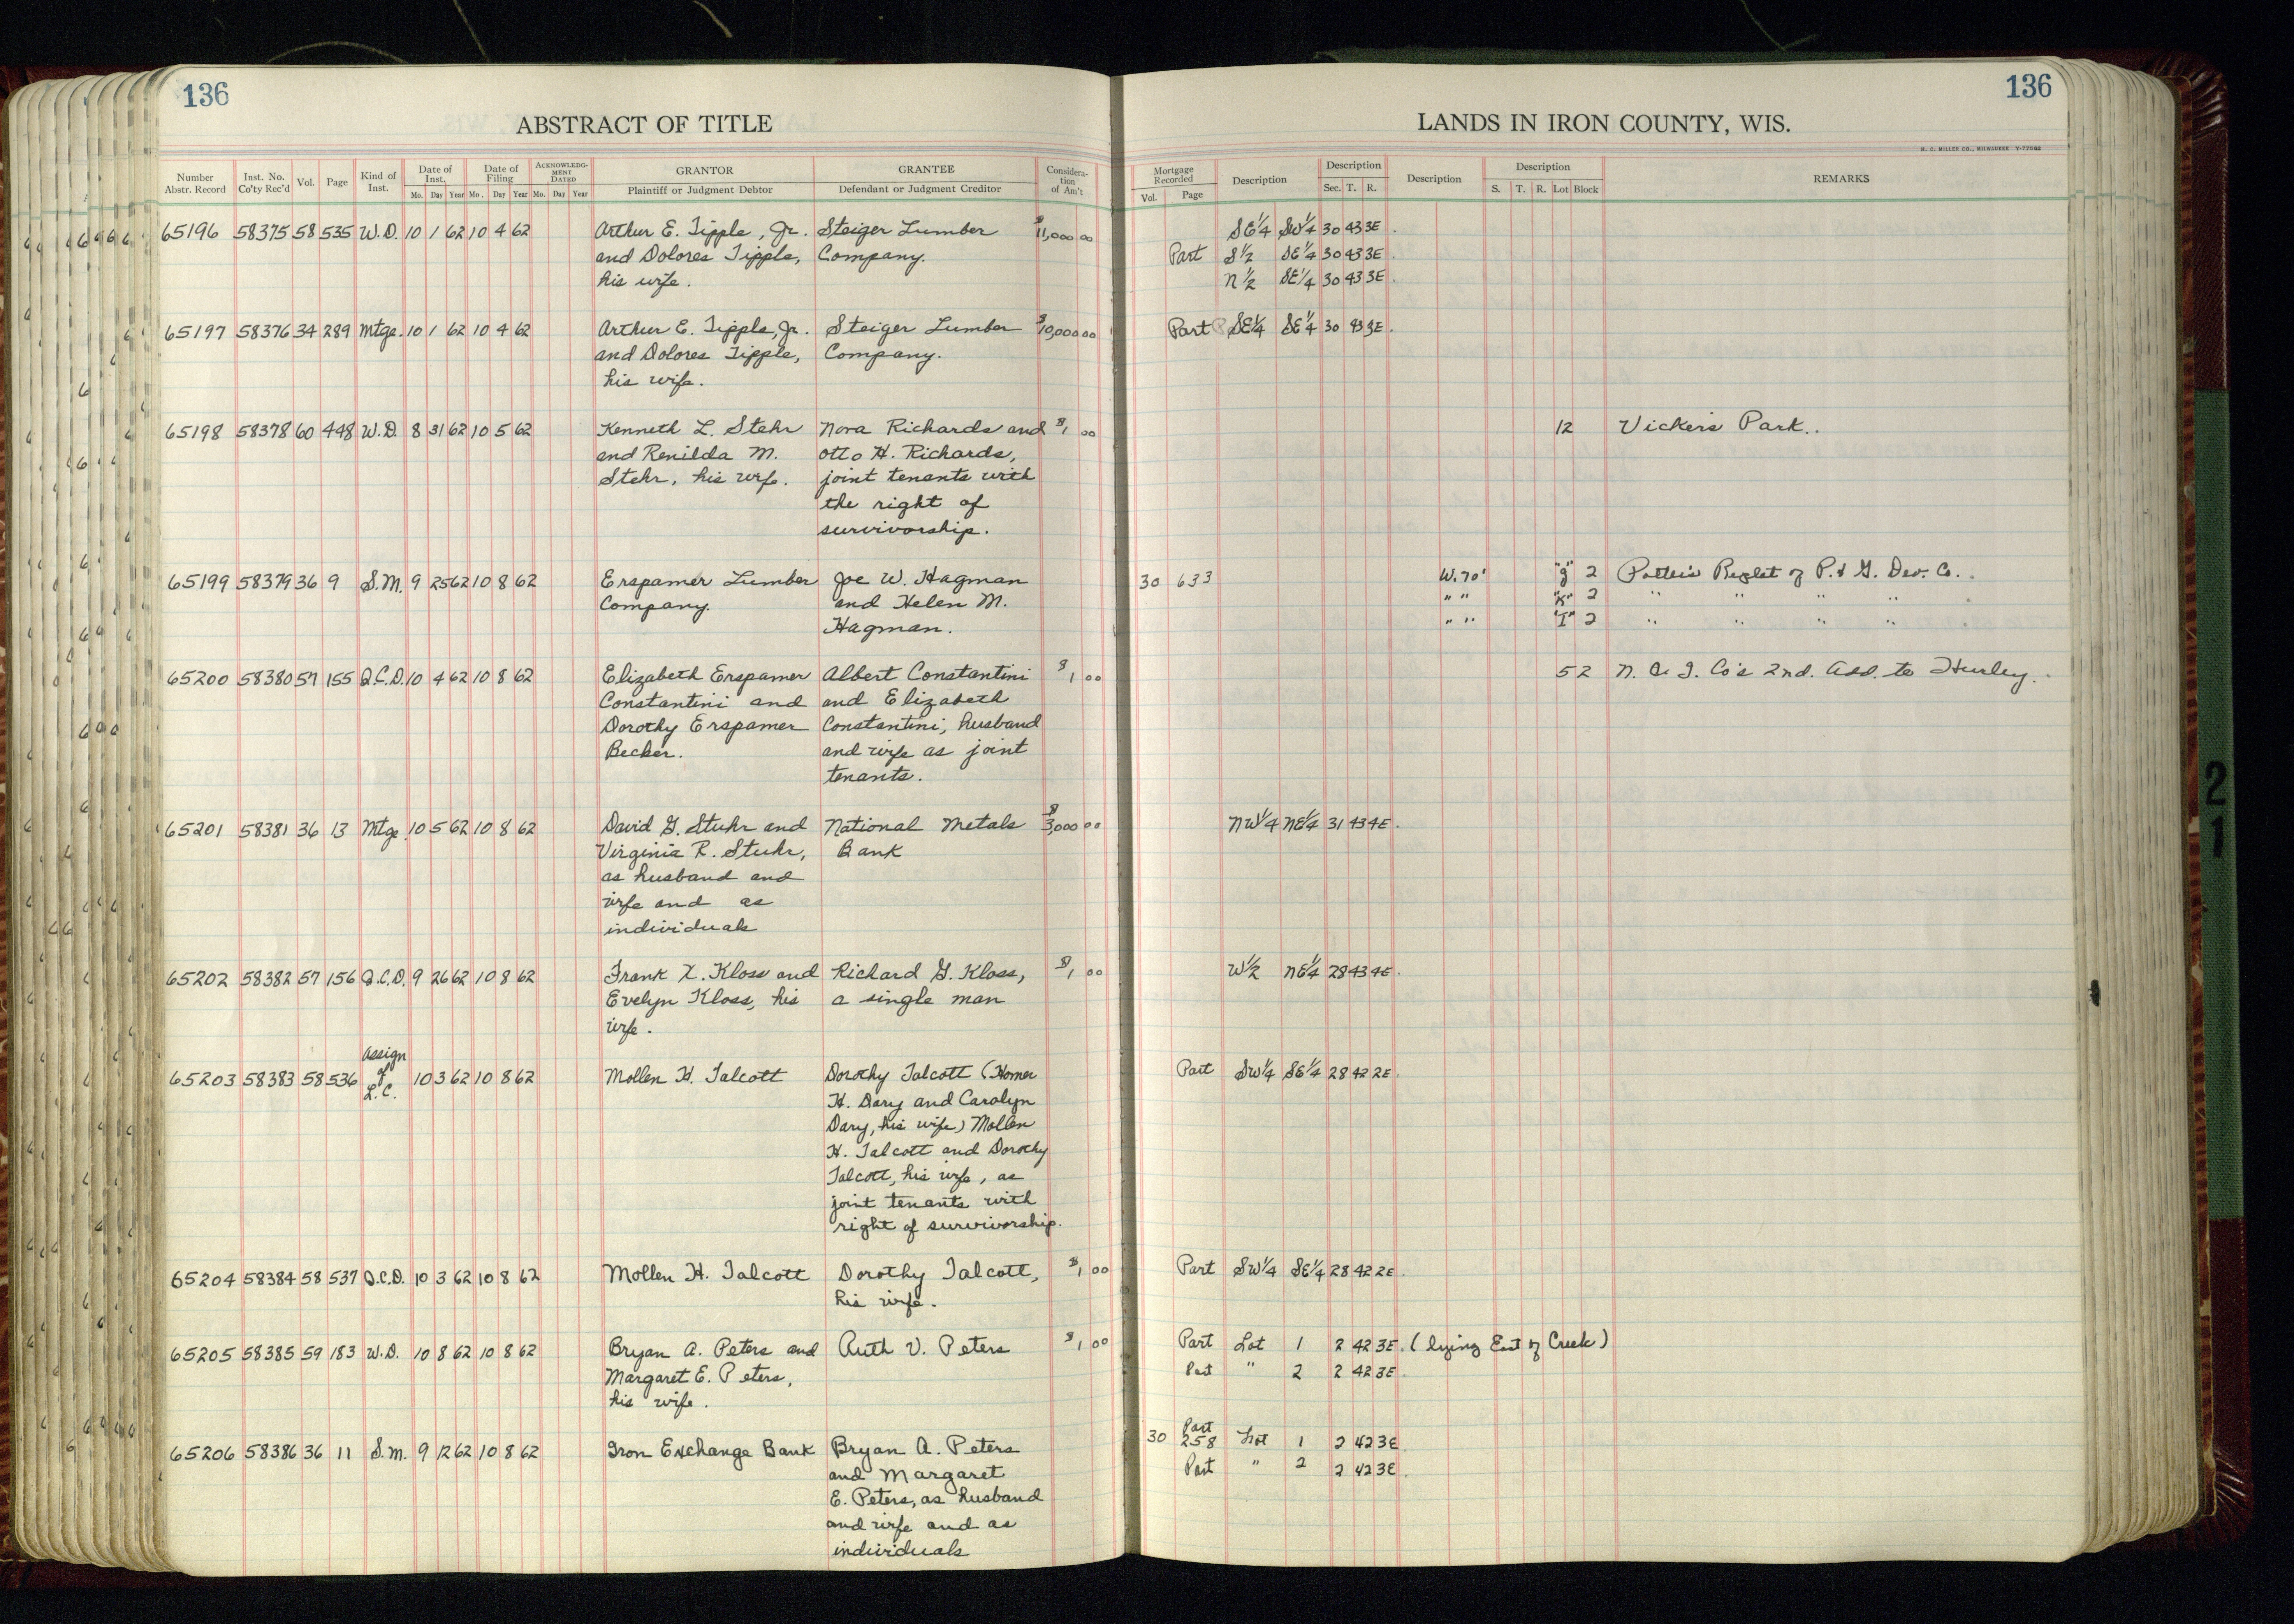 136
ABSTRACT OF TITLE
Number Abstr. Record Inst. No. Co'ty Rec'd Vol. Page Kind of Inst. Date of Inst. Mo. Day Year Date of Filing Mo. Day Year ACKNOWLEDGMENT DATED Mo. Day Year GRANTOR Plaintiff or Judgment Debtor GRANTEE Defendant or Judgment Creditor Consideration of Am't
65196 58375 58 535 W.D. 10 1 62 10 4 62 Arthur E. Tipple, Jr. Steiger Lumber $11,000 00
and Dolores Tipple, Company.
his wife.
65197 58376 34 289 Mtge. 10 1 62 10 4 62 Arthur E. Tipple, Jr. Steiger Lumber $10,000 00
and Dolores Tipple, Company.
his wife.
65198 58378 60 448 W.D. 8 31 62 10 5 62 Kenneth L. Stehr Nora Richards and $1 00
and Renilda M. Otto H. Richards,
Stehr, his wife. joint tenants with
the right of
survivorship.
65199 58379 36 9 S.M. 9 25 62 10 8 62 Erspamer Lumber Joe W. Hagman
Company. and Helen M.
Hagman.
65200 58380 57 155 Q.C.D. 10 4 62 10 8 62 Elizabeth Erspamer Albert Constantini $1 00
Constantini and and Elizabeth
Dorothy Erspamer Constantini, husband
Becker. and wife as joint
tenants.
65201 58381 36 13 Mtge. 10 5 62 10 8 62 David G. Stuhr and National Metals $3,000 00
Virginia R. Stuhr, Bank
as husband and
wife and as
individuals
65202 58382 57 156 Q.C.D. 9 26 62 10 8 62 Frank X. Kloss and Richard G. Kloss, $1 00
Evelyn Kloss, his a single man
wife.
65203 58383 58 536 Assign of L.C. 10 3 62 10 8 62 Mollen H. Talcott Dorothy Talcott (Homer
H. Dary and Carolyn
Dary, his wife) Mollen
H. Talcott and Dorothy
Talcott, his wife, as
joint tenants with
right of survivorship.
65204 58384 58 537 Q.C.D. 10 3 62 10 8 62 Mollen H. Talcott Dorothy Talcott, $1 00
his wife.
65205 58385 59 183 W.D. 10 8 62 10 8 62 Bryan A. Peters and Ruth V. Peters $1 00
Margaret E. Peters,
his wife.
65206 58386 36 11 S.M. 9 12 62 10 8 62 Iron Exchange Bank Bryan A. Peters
and Margaret
E. Peters, as husband
and wife and as
individuals
136
LANDS IN IRON COUNTY, WIS.
H. C. MILLER CO., MILWAUKEE
Mortgage Recorded Vol. Page Description Description Sec. T. R. Description Description S. T. R. Lot Block REMARKS
SE 1/4 SW 1/4 30 43 3E.
Part S 1/2 SE 1/4 30 43 3E.
N 1/2 SE 1/4 30 43 3E.
Part SE 1/4 SE 1/4 30 43 3E.
12 Vickers Park.
30 633 W. 70' "J" 2 Potter's Replat of P. & G. Dev. Co.
" " "K" 2 " " " "
" " "I" 2 " " " "
52 N. C. I. Co's 2nd. Add. to Hurley.
NW 1/4 NE 1/4 31 43 4E.
W 1/2 NE 1/4 28 43 4E.
Part SW 1/4 SE 1/4 28 42 2E.
Part SW 1/4 SE 1/4 28 42 2E.
Part Lot 1 2 42 3E. (lying East of Creek)
Part " 2 2 42 3E.
30 258 Part Lot 1 2 42 3E.
Part " 2 2 42 3E.
21